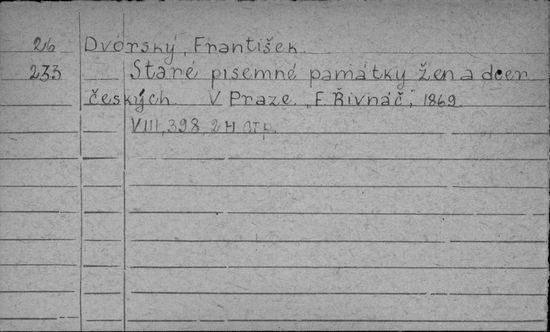 26 Dvórský, František.
233 Staré písemné památky žen a dcer
českých. V Praze. "F. Řivnáč", 1869
VIII, 398, 2 н. стр.